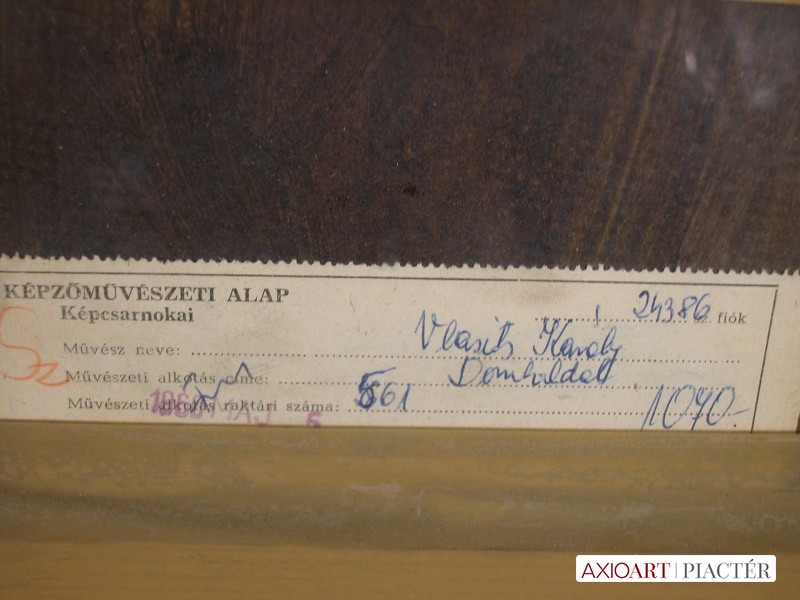 KÉPZŐMŰVÉSZETI ALAP
Képcsarnokai
24386 sz. fiók
Művész neve: Vlasits Károly
Művészeti alkotás címe: Domboldal
Művészeti alkotás raktári száma: 561 1070.-
MÁJ 5
Sz
AXIOART | PIACTÉR